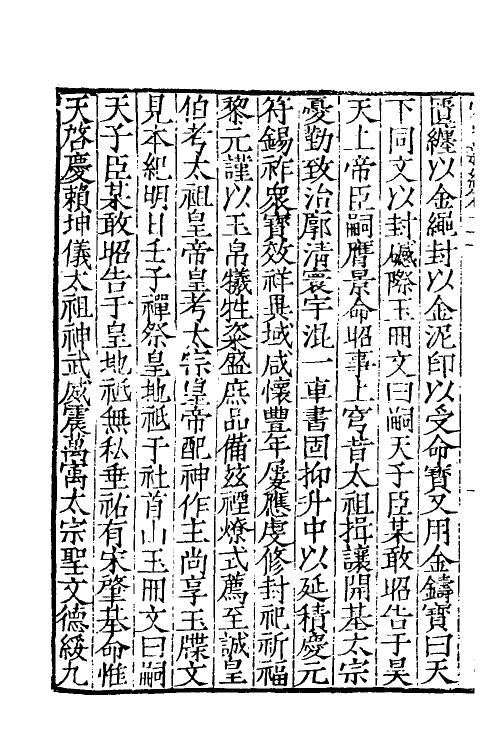 匱纏以金繩封以金泥印以受命寶又用金鑄寶曰天
下同文以封礆際玉冊文曰嗣天子臣某敢昭告于昊
天上帝臣嗣膺景命昭事上穹昔太祖揖讓開基太宗
憂勤致治廓清寰宇混一車書固抑升中以延積慶元
符錫祚衆寶效祥異域咸懷豐年屢應虔修封祀祈福
黎元謹以玉帛犧牲粢盛庶品備兹禋燎式薦至誠皇
伯考太祖皇帝皇考太宗皇帝配神作主尚享玉牒文
見本紀明日壬子禪祭皇地祇于社首山玉冊文曰嗣
天子臣某敢昭告于皇地祇無私垂祐有宋肇基命惟
天啓慶賴坤儀太祖神武威震萬㝢太宗聖文德綏九